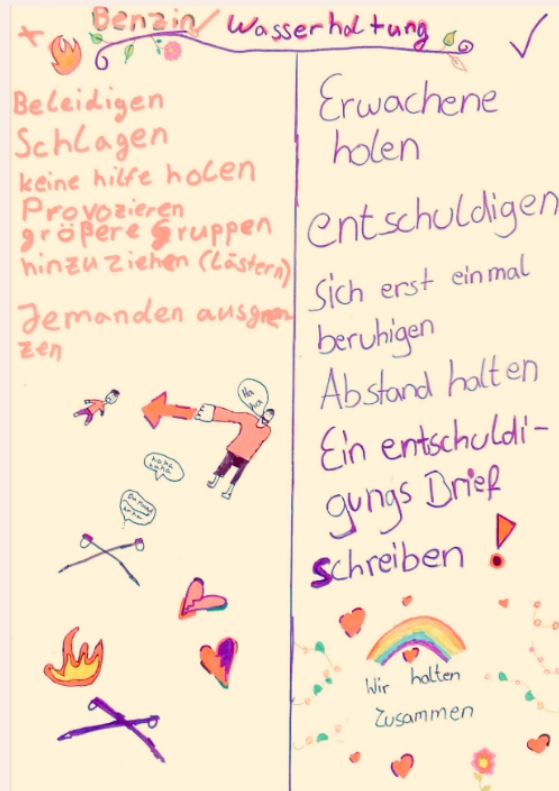 Benzin / Wasserhaltung
Beleidigen
Schlagen
keine hilfe holen
Provozieren
größere Gruppen
hinzu ziehen (Lästern)
Jemanden ausgren
zen
Ha
ha
haha
haha
Erwachene
holen
entschuldigen
Sich erst einmal
beruhigen
Abstand halten
Ein entschuldi-
gungs Brief
schreiben !
Wir halten
Zusammen